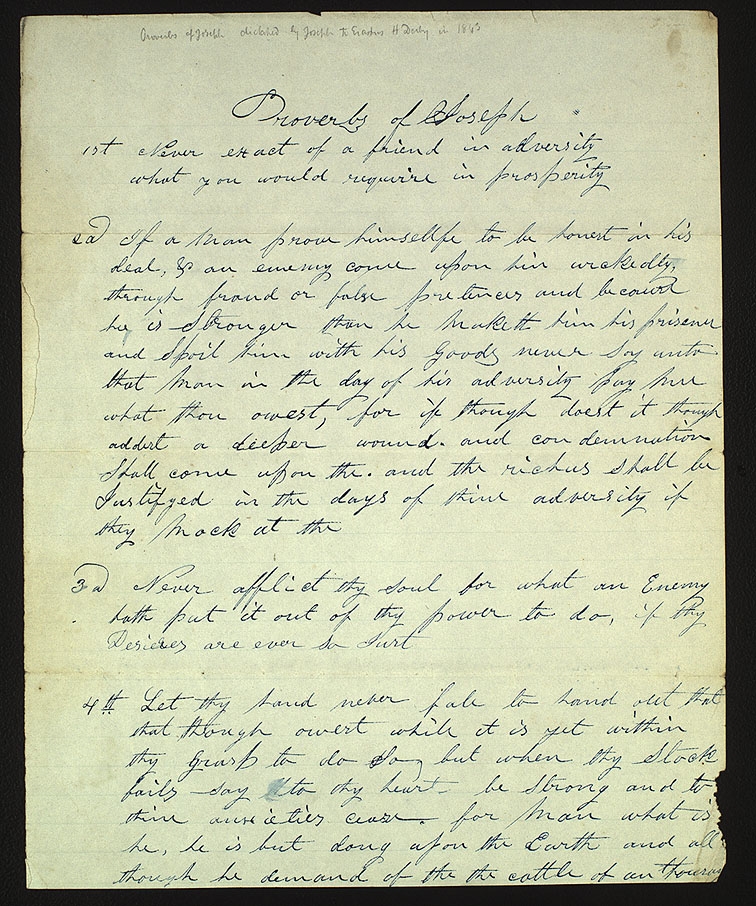 Proverbs of Joseph dictated by Joseph to Erastus H Derby in 1843
Proverbs of Joseph
1st Never exact of a friend in adversity
what you would requiire in prosperity
2d If a Man prove himsellfe to be honest in his
deal, & an enemy come upon him wickedly,
through fraud or false pretences and because
he is Stronger than he Maketh him his prisener
and Spoil him with his Goods never Say unto
that Man in the day of his adversity pay mee
what thou owest, for if though doest it though
addest a deeper wound. and condemnation
Shall come upon the. and the riches shall be
Justifyed in the days of thine adversity if
they Mock at the
3d Never afflict thy soul for what an Enemy
hath put it out of thy power to do, if thy
Desiers are ever so Just
4th Let thy hand never fale to hand out that
that though owest while it is yet within
thy Grasp to do So but when thy Stock
fails say to thy heart be Strong and to
thine anxieties cease. for Man what is
he, he is but dong upon the Earth and all
though he demand of the the cattle of an thousan